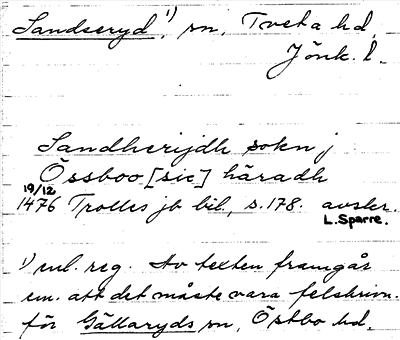 Sandseryd,¹) sn, Tveta hd,
Jönk. l.
Sandherijdh sokn j
Össboo [sic] häradh
19/12
1476 Trolles jb bil, s. 178. avskr.
L. Sparre.
¹) enl. reg. Av texten framgår
em. att det måste vara felskrivn.
för Gällaryds sn, Östbo hd.